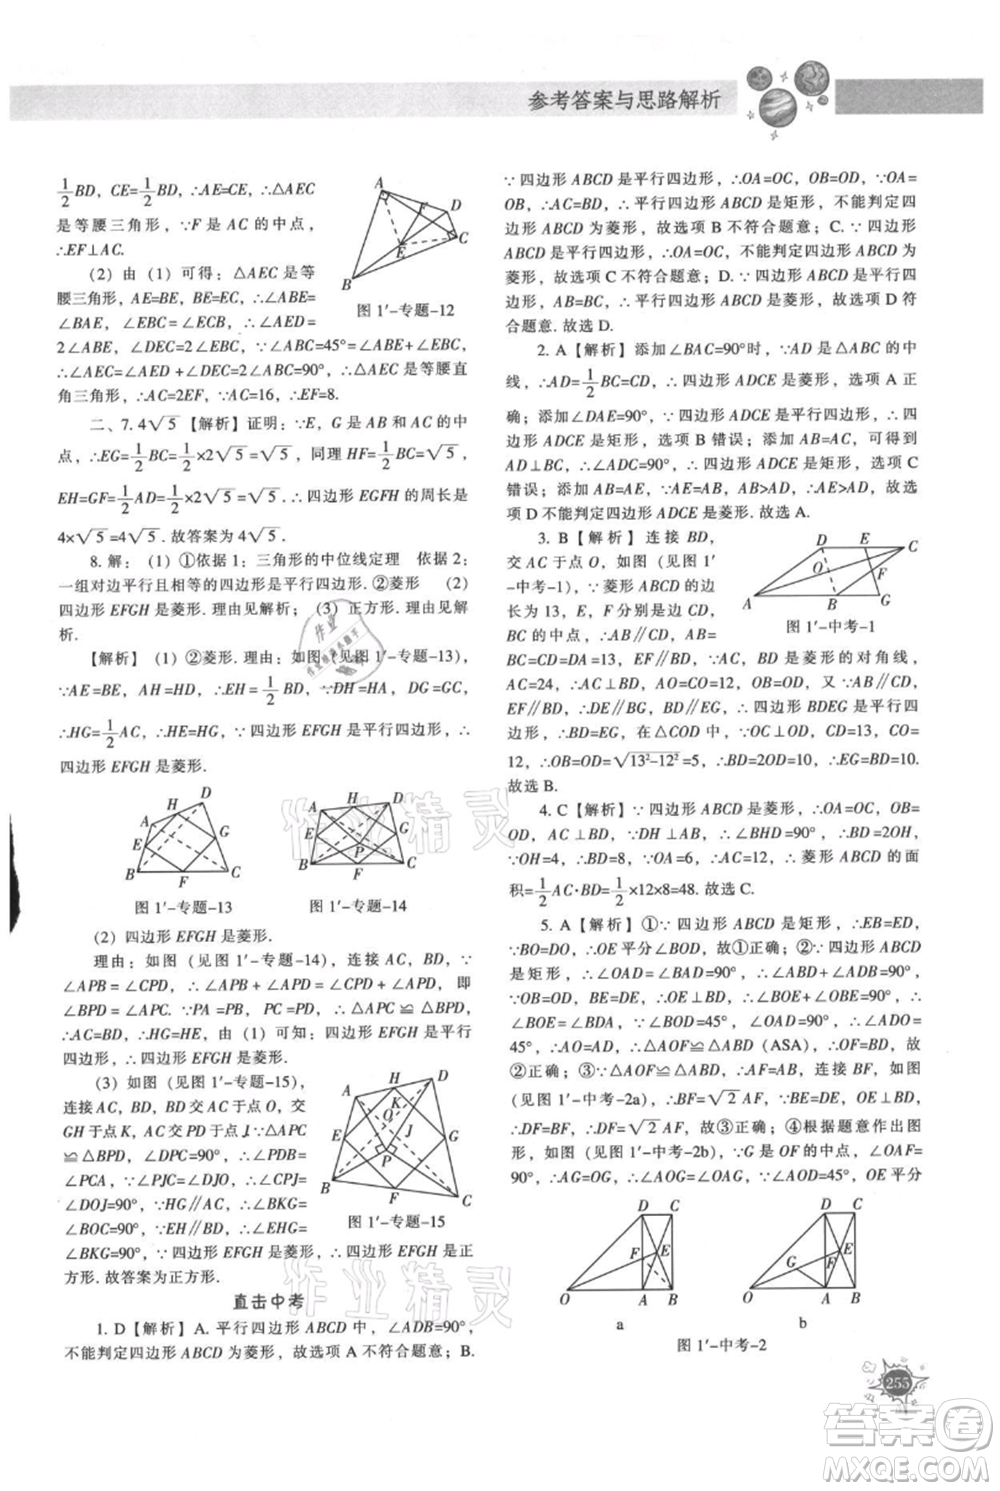 参考答案与思路解析
1/2BD, CE=1/2BD, ∴AE=CE, ∴△AEC
是等腰三角形, ∵F 是 AC 的中点,
∴EF⊥AC.
(2) 由 (1) 可得: △AEC 是等
腰三角形, AE=BE, BE=EC, ∴∠ABE=
∠BAE, ∠EBC=∠ECB, ∴∠AED=
2∠ABE, ∠DEC=2∠EBC, ∵∠ABC=45°=∠ABE+∠EBC,
∴∠AEC=∠AED +∠DEC=2∠ABC=90°, ∴△AEC 是等腰直
角三角形, ∴AC=2EF, ∵AC=16, ∴EF=8.
A
D
E
C
B
图 1′-专题-12
二、7. 4√5 【解析】证明: ∵E, G 是 AB 和 AC 的中
点, ∴EG=1/2BC=1/2×2√5=√5, 同理 HF=1/2BC=√5,
EH=GF=1/2AD=1/2×2√5=√5. ∴四边形 EGFH 的周长是
4×√5=4√5. 故答案为 4√5.
8. 解: (1) ①依据 1: 三角形的中位线定理 依据 2:
一组对边平行且相等的四边形是平行四边形. ②菱形 (2)
四边形 EFGH 是菱形. 理由见解析; (3) 正方形. 理由见解
析.
【解析】 (1) ②菱形. 理由: 如图 (见图 1′-专题-13),
∵AE=BE, AH=HD, ∴EH=1/2BD, ∵DH=HA, DG=GC,
∴HG=1/2AC, ∵AC=BD, ∴EH=HG, ∵四边形 EFGH 是平行四边形, ∴
四边形 EFGH 是菱形.
H D
A
G
E
B F C
图 1′-专题-13
A H D
E G
P
B F C
图 1′-专题-14
(2) 四边形 EFGH 是菱形.
理由: 如图 (见图 1′-专题-14), 连接 AC, BD, ∵
∠APB =∠CPD, ∴∠APB +∠APD =∠CPD +∠APD, 即
∠BPD =∠APC. ∵PA =PB, PC =PD, ∴△APC≌△BPD,
∴AC=BD, ∴HG=HE, 由 (1) 可知: 四边形 EFGH 是平行
四边形, ∴四边形 EFGH 是菱形.
(3) 如图 (见图 1′-专题-15),
连接AC, BD, AC与BD交于点O, AC交
GH于点K, AC交PD于点J, ∵△APC
≌△BPD, ∴∠DPC=90°, ∴∠PDB=
∠PCA, ∵∠DJO=∠CJP, ∴∠CPJ=
∠DOJ=90°, ∵HG∥AC, ∴∠BKG=
∠BOC=90°, ∵EH∥BD, ∴∠EHG=
∠BKG=90°, ∵四边形 EFGH 是菱形, ∴四边形 EFGH 是正方
形. 故答案为正方形.
A H D
K
O
J
E G
P
B F C
图 1′-专题-15
直击中考
1. D【解析】A. 平行四边形 ABCD 中, ∠ADB=90°,
不能判定四边形 ABCD 为菱形, 故选项 A 不符合题意; B.
∵四边形 ABCD 是平行四边形, ∴OA=OC, OB=OD, ∵OA=
OB, ∴AC=BD, ∴平行四边形 ABCD 是矩形, 不能判定四
边形 ABCD 为菱形, 故选项 B 不符合题意; C. ∵四边形
ABCD 是平行四边形, ∴OA=OC, 不能判定四边形 ABCD 为
菱形, 故选项 C 不符合题意; D. ∵四边形 ABCD 是平行四边
形, AB=BC, ∴平行四边形 ABCD 是菱形, 故选项 D 符
合题意. 故选 D.
2. A【解析】添加∠BAC=90°时, ∵AD 是△ABC 的中
线, ∴AD=1/2BC=CD, ∴四边形 ADCE 是菱形, 选项 A 正
确; 添加∠DAE=90°, ∵四边形 ADCE 是平行四边形, ∴四
边形 ADCE 是矩形, 选项 B 错误; 添加 AB=AC, 可得到
AD⊥BC, ∴∠ADC=90°, ∴四边形 ADCE 是矩形, 选项 C
错误; 添加 AB=AE, ∵AE=BD, ∴AB=BD, AB>AD, ∴AE>AD, 故选
项 D 不能判定四边形 ADCE 是菱形, 故选 A.
3. B【解析】连接 BD,
交 AC 于点 O, (见图
1′-中考-1), ∵菱形 ABCD 的边
长为 13, E, F 分别是边 CD,
BC 的中点, ∴AB=BC=CD=
DA=13, EF∥BD, ∵AC, BD是菱形 ABCD 的对角线,
AC=24, ∴AC⊥BD, AO=CO=12, OB=OD, 又∵AB∥CD,
EF∥BD, ∴DE∥BG, BD∥EG, ∴四边形 BDEG 是平行四
边形, ∴BD=EG, 在△COD 中, ∵OC⊥OD, CD=13, CO=
12, ∴OB=OD=√13²-12²=5, ∴BD=2OD=10, ∴EG=BD=10.
故选 B.
D E C
O
F
A B G
图 1′-中考-1
4. C【解析】∵四边形 ABCD 是菱形, ∴OA=OC, OB=
OD, AC⊥BD, ∵DH⊥AB, ∴∠BHD=90°, ∴BD=2OH,
∵OH=4, ∴BD=8, ∵OA=6, ∴AC=12, ∴菱形 ABCD 的面
积=1/2AC·BD=1/2×12×8=48. 故选 C.
5. A【解析】①∵四边形 ABCD 是矩形, ∴EB=ED,
∵BO=DO, ∴OE 平分∠BOD, 故①正确; ②∵四边形 ABCD
是矩形, ∴∠OAD =∠BAD =90°, ∴∠ABD +∠ADB =90°,
∵OB=OD, BE=DE, ∴OE⊥BD, ∴∠BOE+∠OBE=90°, ∴
∠BOE=∠BDA, ∵∠BOD=45°, ∠OAD=90°, ∴∠ADO=
45°, ∴AO=AD, ∴△AOF≌△ABD (ASA), ∴OF=BD, 故
②正确; ③∵△AOF≌△ABD, ∴AF=AB, 连接 BF, 如图
(见图 1′-中考-2a), ∴BF=√2AF, ∵BE=DE, OE⊥BD,
∴DF=BF, ∴DF=√2AF, 故③正确; ④根据题意作出图
形, 如图 (见图 1′-中考-2b), ∵G 是 OF 的中点, ∠OAF=
90°, ∴AG=OG, ∴∠AOG=∠OAG, ∵∠AOD=45°, OE 平分
D C
F E
O A B
a
D C
G F E
O A B
b
图 1′-中考-2
255
作业精灵
作业精灵
答案圈
MXQE.COM